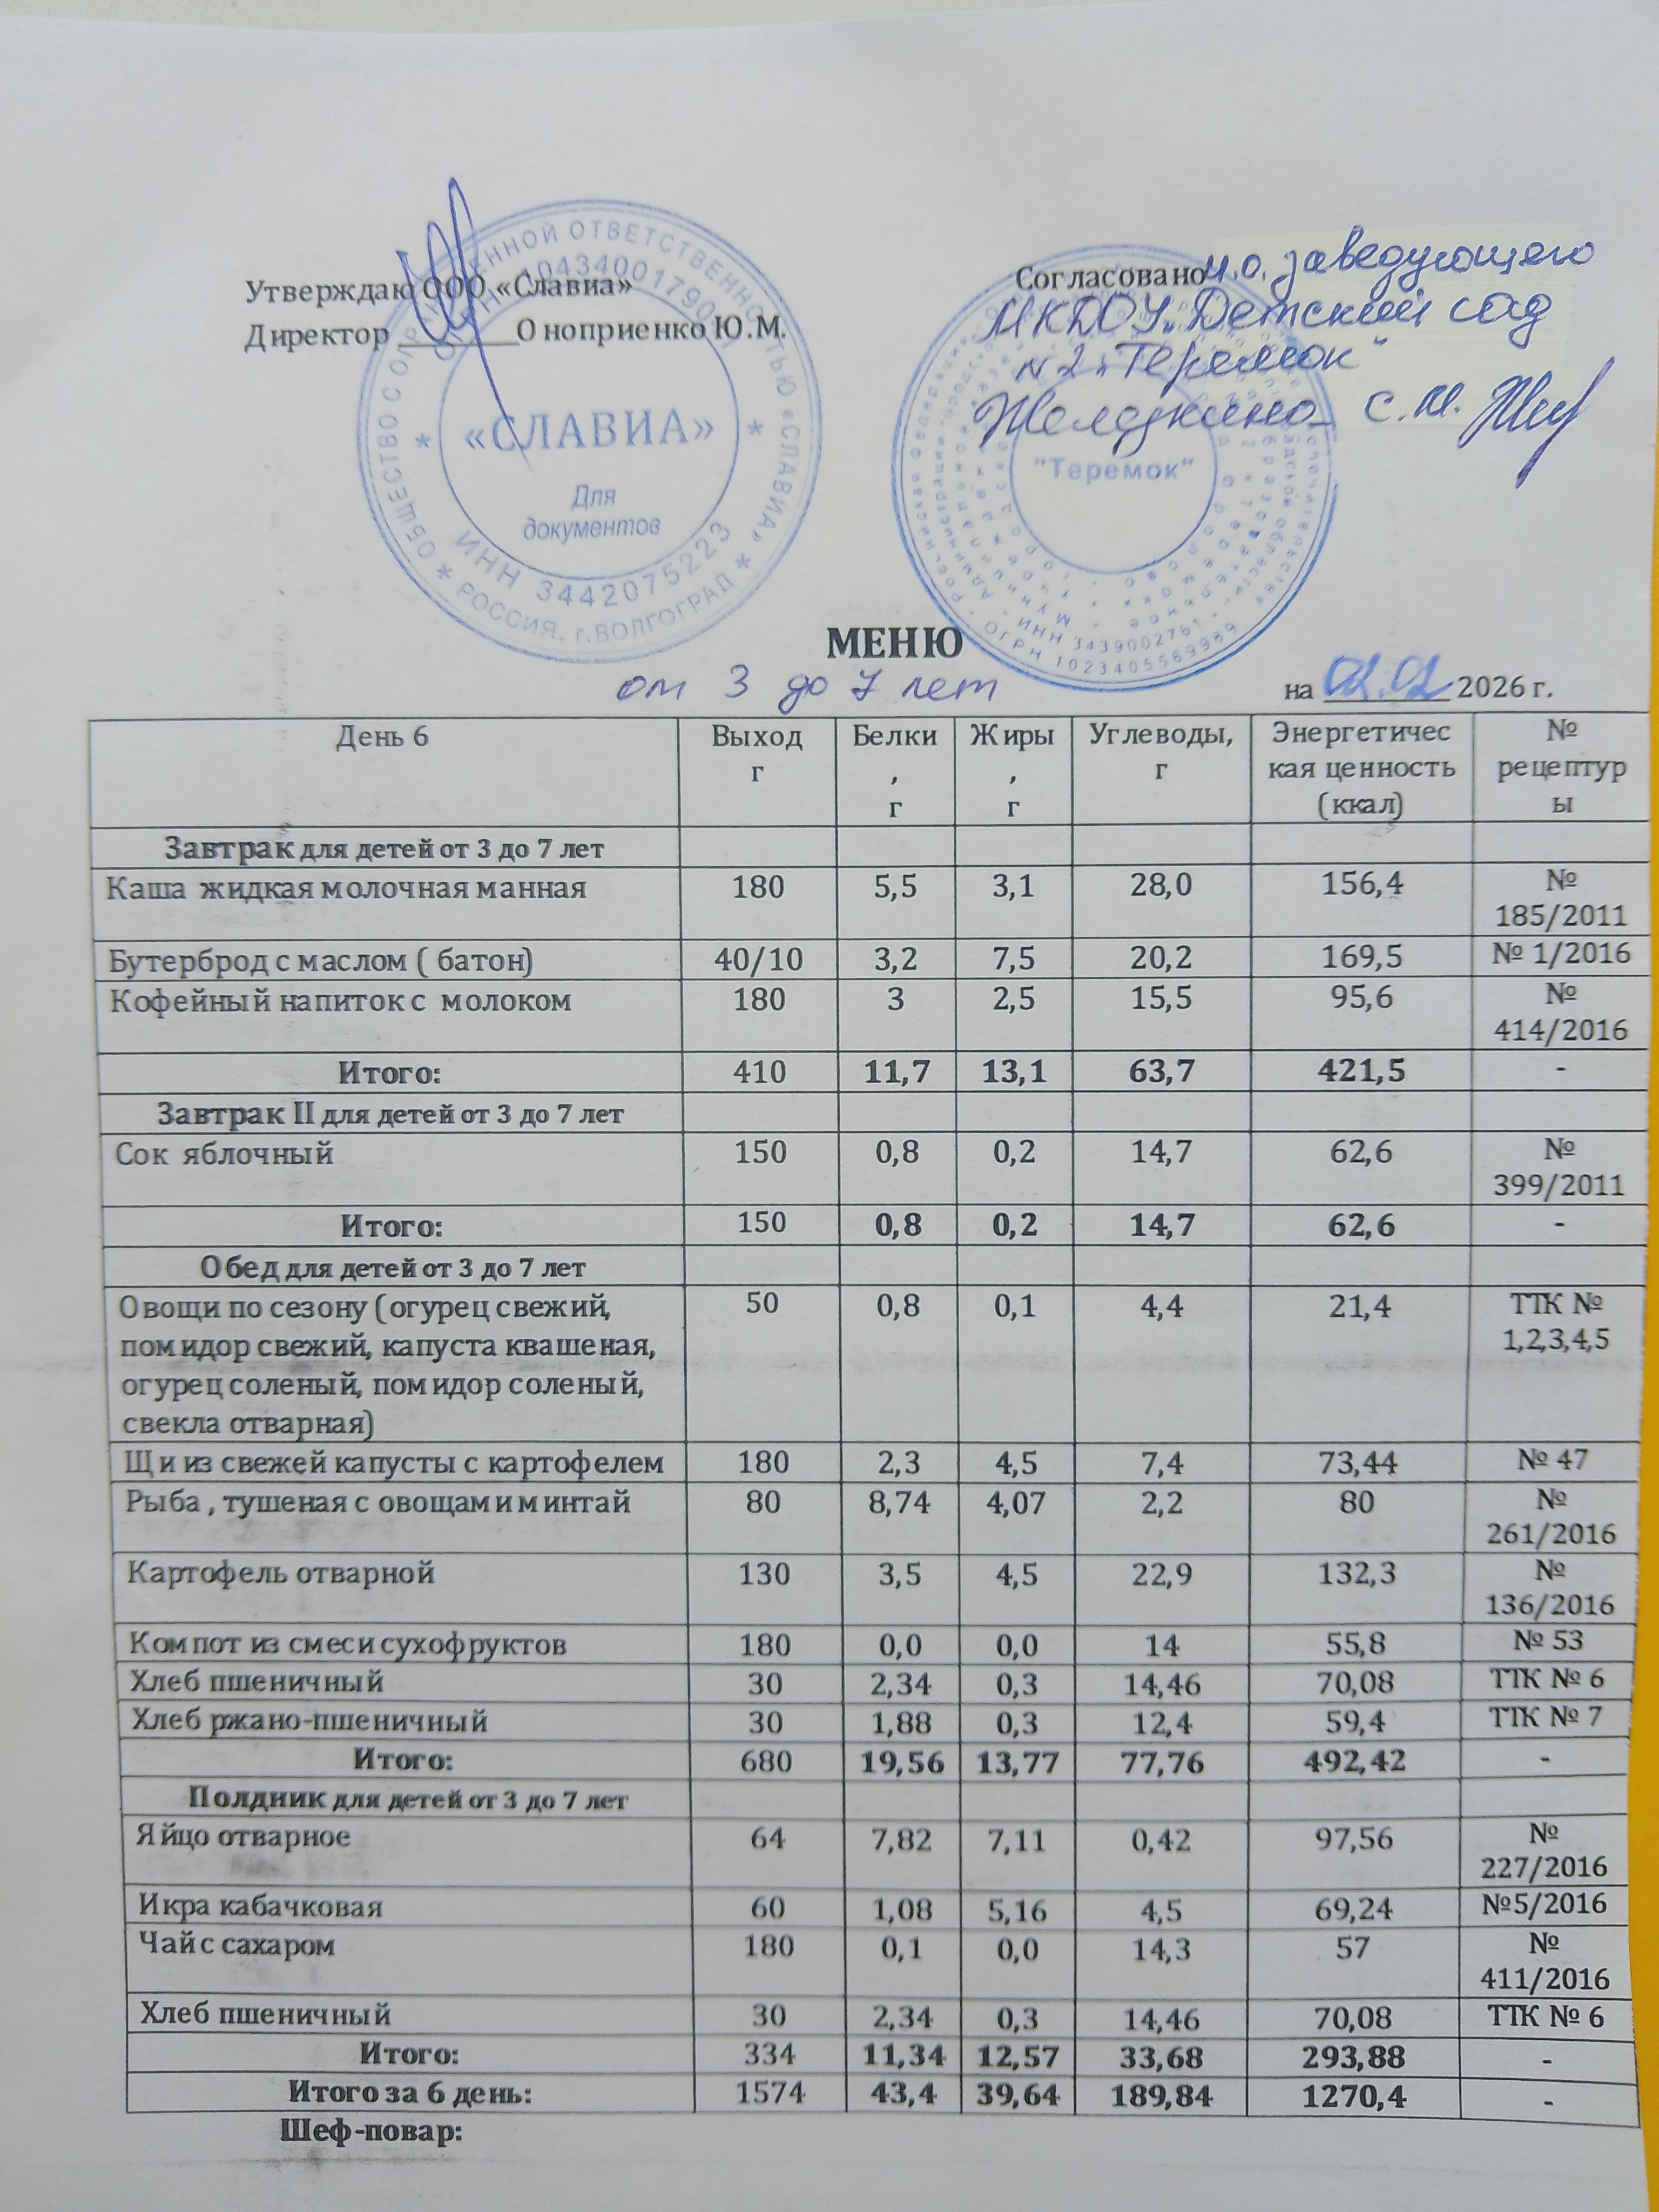 Утверждаю ООО «Славиа»
Директор ________Оноприенко Ю.М.
ОБЩЕСТВО С ОГРАНИЧЕННОЙ ОТВЕТСТВЕННОСТЬЮ «СЛАВИА»
«СЛАВИА»
Для
документов
ИНН 3442075223
РОССИЯ, г.ВОЛГОГРАД
Согласовано и.о. заведующего
МКДОУ "Детский сад
№2 "Теремок"
С.М.
"Теремок"
ИНН 3439002761
ОГРН 1023405569989
МЕНЮ
от 3 до 7 лет
на 02.02 2026 г.
День 6 Выход г Белки, г Жиры, г Углеводы, г Энергетическая ценность (ккал) № рецептуры
Завтрак для детей от 3 до 7 лет
Каша жидкая молочная манная 180 5,5 3,1 28,0 156,4 № 185/2011
Бутерброд с маслом ( батон) 40/10 3,2 7,5 20,2 169,5 № 1/2016
Кофейный напиток с молоком 180 3 2,5 15,5 95,6 № 414/2016
Итого: 410 11,7 13,1 63,7 421,5 -
Завтрак II для детей от 3 до 7 лет
Сок яблочный 150 0,8 0,2 14,7 62,6 № 399/2011
Итого: 150 0,8 0,2 14,7 62,6 -
Обед для детей от 3 до 7 лет
Овощи по сезону (огурец свежий, 50 0,8 0,1 4,4 21,4 ТТК №
помидор свежий, капуста квашеная, 1,2,3,4,5
огурец соленый, помидор соленый,
свекла отварная)
Щи из свежей капусты с картофелем 180 2,3 4,5 7,4 73,44 № 47
Рыба , тушеная с овощами минтай 80 8,74 4,07 2,2 80 № 261/2016
Картофель отварной 130 3,5 4,5 22,9 132,3 № 136/2016
Компот из смеси сухофруктов 180 0,0 0,0 14 55,8 № 53
Хлеб пшеничный 30 2,34 0,3 14,46 70,08 ТТК № 6
Хлеб ржано-пшеничный 30 1,88 0,3 12,4 59,4 ТТК № 7
Итого: 680 19,56 13,77 77,76 492,42 -
Полдник для детей от 3 до 7 лет
Яйцо отварное 64 7,82 7,11 0,42 97,56 № 227/2016
Икра кабачковая 60 1,08 5,16 4,5 69,24 №5/2016
Чай с сахаром 180 0,1 0,0 14,3 57 № 411/2016
Хлеб пшеничный 30 2,34 0,3 14,46 70,08 ТТК № 6
Итого: 334 11,34 12,57 33,68 293,88 -
Итого за 6 день: 1574 43,4 39,64 189,84 1270,4 -
Шеф-повар: